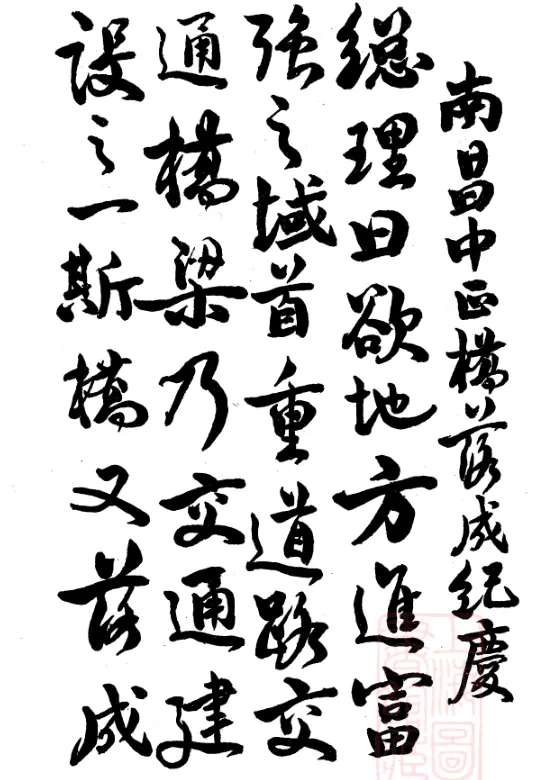 南昌中正橋落成紀慶
總理曰欲地方進富
強之域首重道路交
通橋梁乃交通建
設之一斯橋又落成